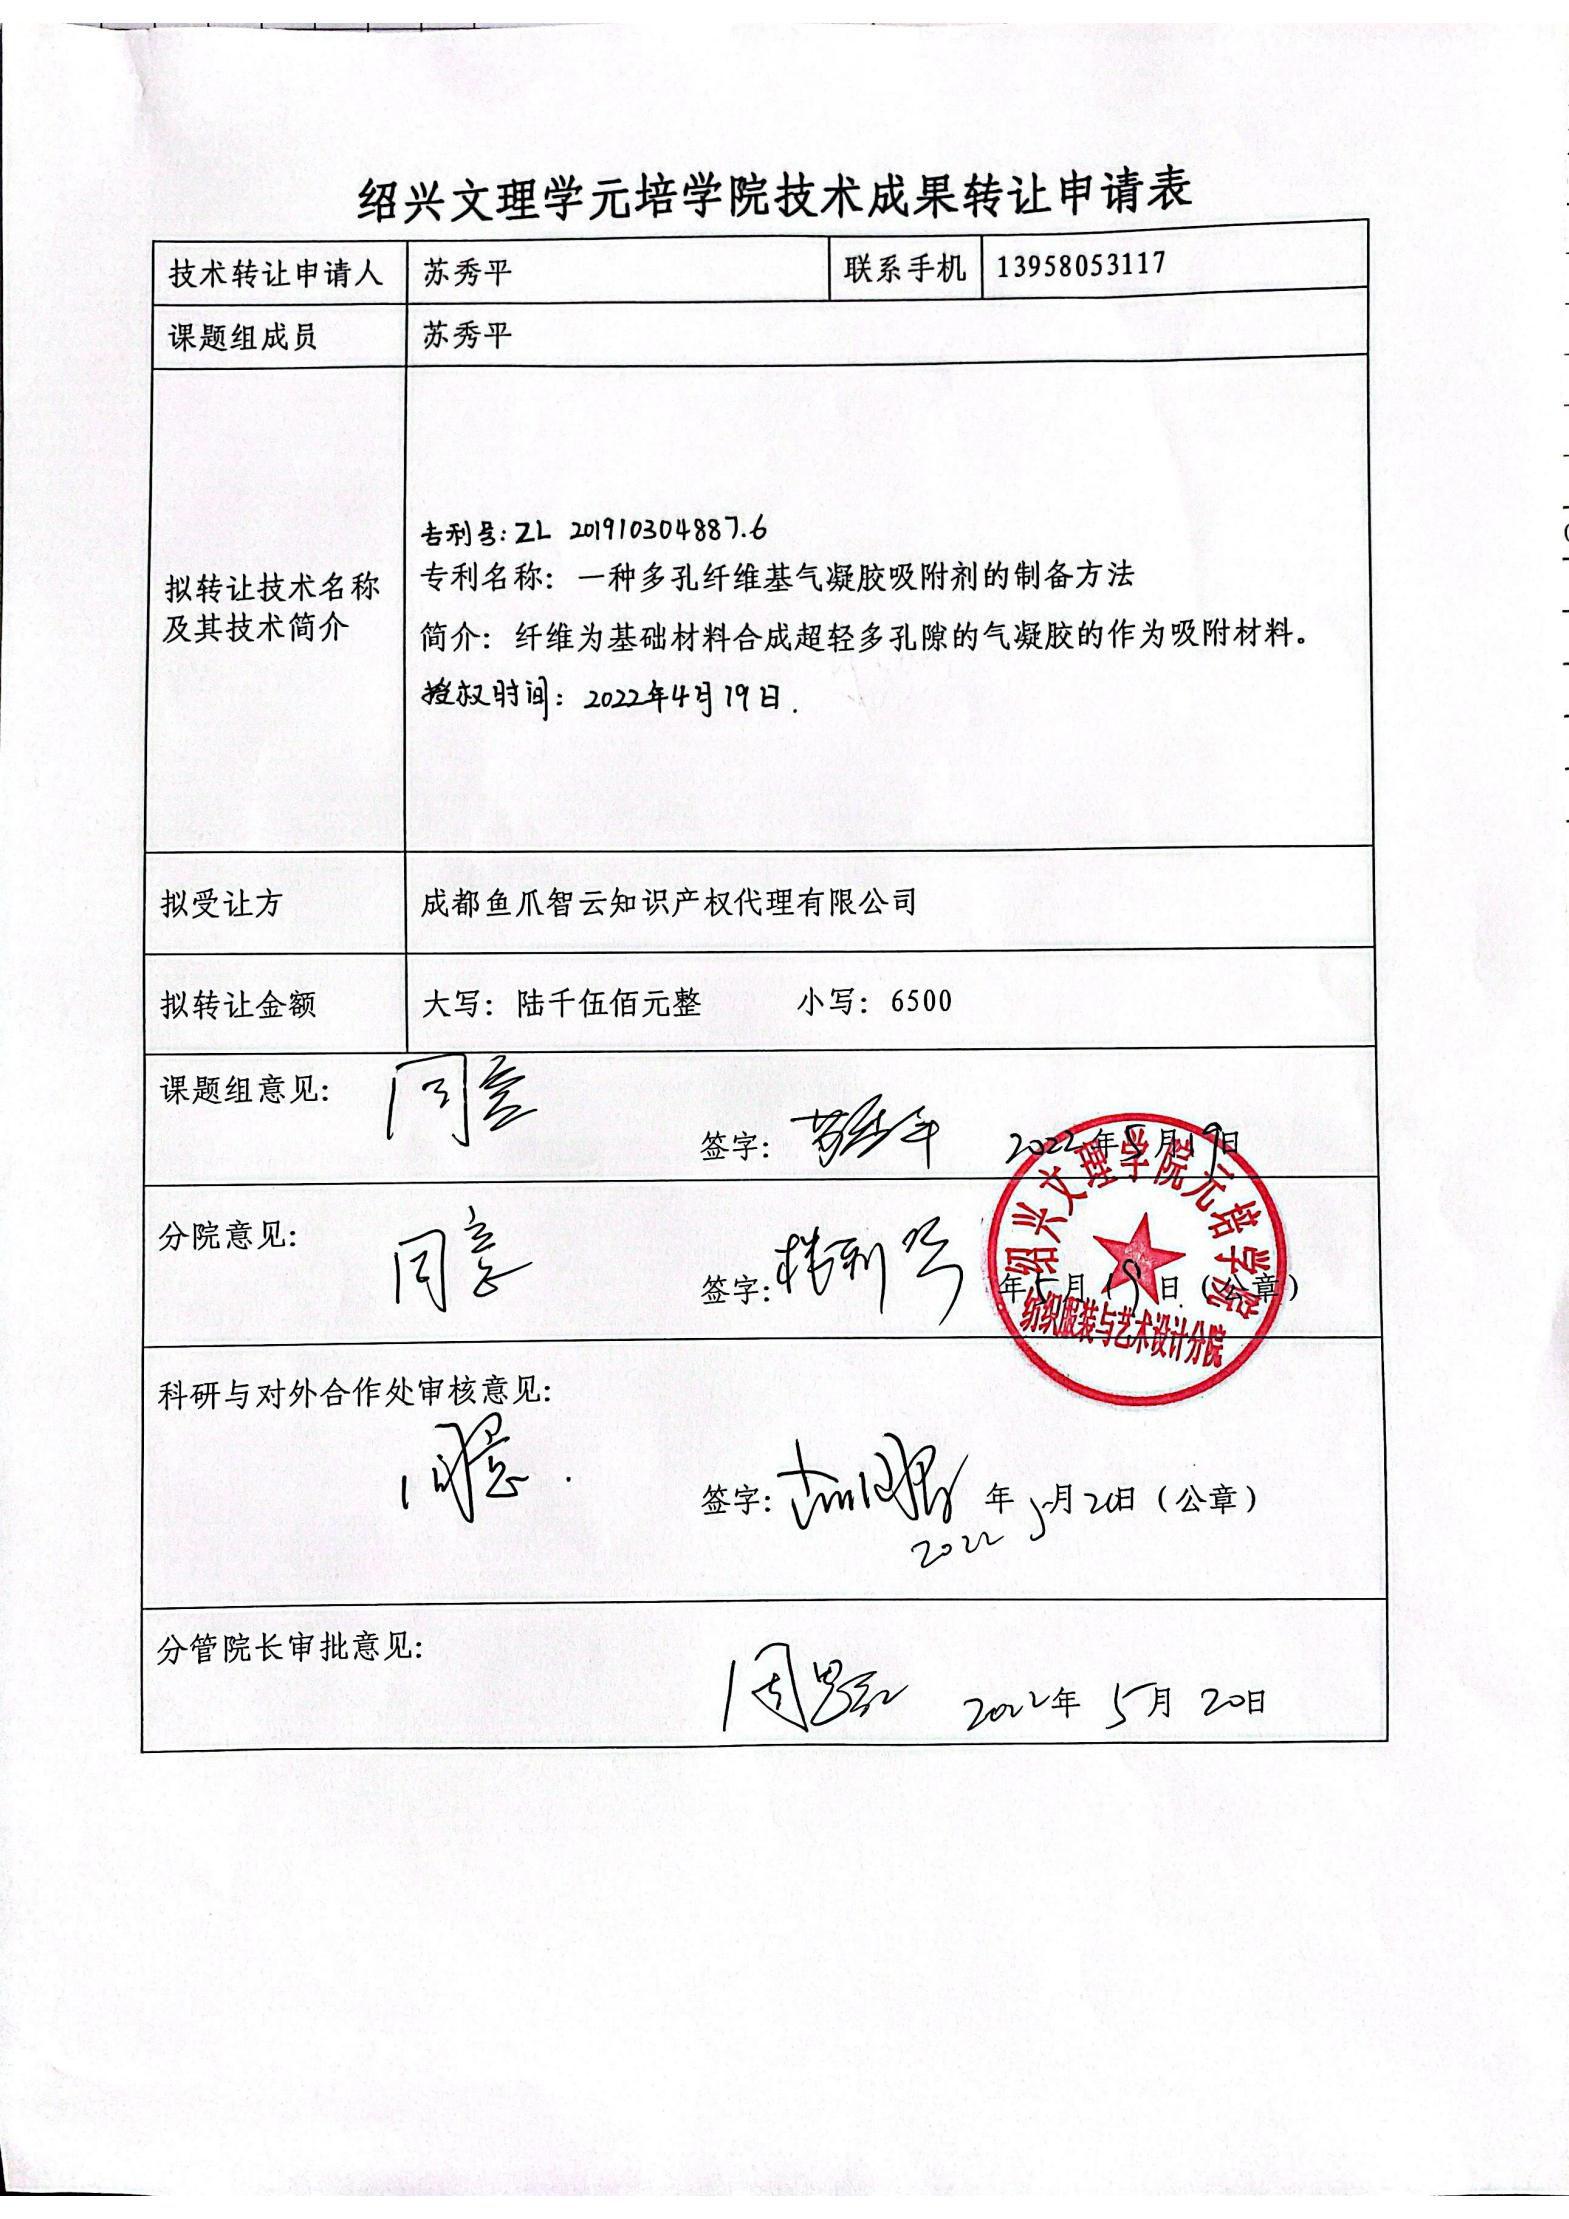 绍兴文理学元培学院技术成果转让申请表
技术转让申请人 苏秀平 联系手机 13958053117
课题组成员 苏秀平
拟转让技术名称
及其技术简介
专利号:ZL 201910304887.6
专利名称：一种多孔纤维基气凝胶吸附剂的制备方法
简介：纤维为基础材料合成超轻多孔隙的气凝胶的作为吸附材料。
授权时间：2022年4月19日.
拟受让方 成都鱼爪智云知识产权代理有限公司
拟转让金额 大写：陆千伍佰元整 小写：6500
课题组意见: 同意
签字: 苏秀平 2022年5月19日
分院意见: 同意
签字: 年5月19日（公章）
绍兴文理学院元培学院
纺织服装与艺术设计分院
科研与对外合作处审核意见:
同意.
签字: 年5月20日（公章）
2022
分管院长审批意见:
2022年 5月 20日